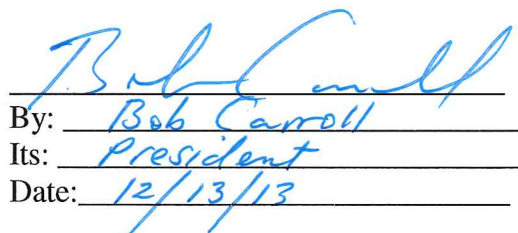 Bob Carroll
By: Bob Carroll
Its: President
Date: 12/13/13